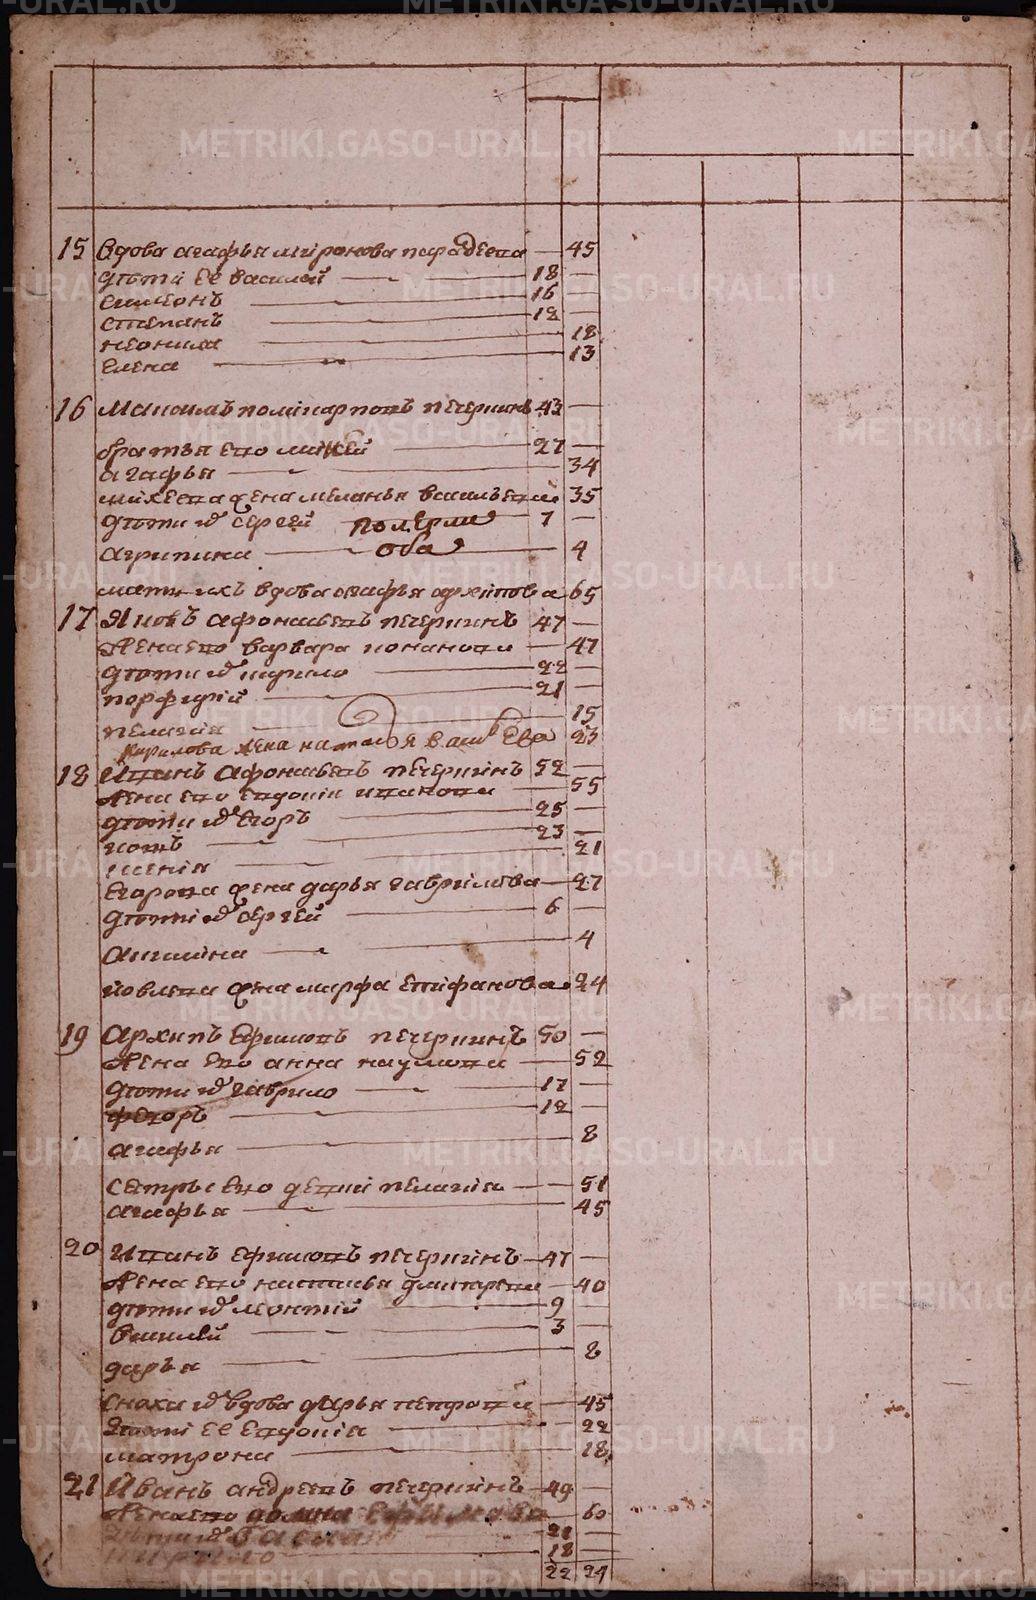 15 Вдова агафья миронова парфеева — 45
дѣти ее василей — 18 —
симеонъ — 16
степанъ — 12 —
неонила — 18
елена — 13
16 Максимъ поликарповъ печеркинъ 43 —
братья ево михей — 27 —
агафья — 34
михеева жена меланья васильева 35
дѣти их сергей померли 7 —
агрипина — оба — 4
мать ихъ вдова агафья архипова 65
17 Яковъ афонасьевъ печеркинъ 47 —
Жена ево варвара кононова — 47
дѣти их кирило — 22 —
порфирій — 21 —
пелагія — 15
Кирилова жена наталья васильева 23
18 Иванъ афонасьевъ печеркинъ 52 —
Жена ево евдокия иванова — 55
дѣти их егоръ — 25 —
иовъ — 23 —
ксенія — 21
Егорова жена дарья гаврилова — 27
дѣти их сергей — 6 —
акилина — 4
иовлева жена марфа епифанова 24
19 Архипъ Ефимовъ печеркинъ 50 —
Жена ево анна наумова — 52
дѣти их гаврило — 17 —
федоръ — 12 —
агафья — 8
сестры ево девки пелагия — 51
агафья — 45
20 Иванъ ефимовъ печеркинъ — 47 —
Жена ево настасья дмитрева — 40
дѣти их леонтій — 9 —
василей — 3 —
дарья — 8
сноха их вдова дарья петрова — 45
дѣти ее евдокія — 22
матрона — 18
21 Иванъ андреевъ печеркинъ — 49 —
Жена ево домна Ефимова — 60
21 —
18 —
22 24